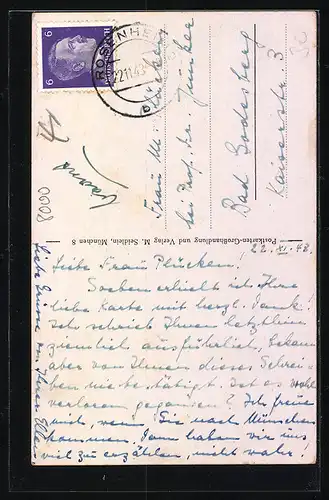 6
Deutsches Reich
6
ROSENHEIM
22.11.43
b
Frau M. Plücken
bei Prof. Dr. Junker
Bad Godesberg
Kaiserstr. 3
0008
Postkarten-Großhandlung und Verlag M. Seidlein, München 8
22. XI. 43.
Liebe Frau Plücken!
Soeben erhielt ich Ihre
liebe Karte mit herzl. Dank!
Ich schrieb Ihnen letzthin
ziemlich ausführlich, bekam
aber von Ihnen dieses Schrei-
ben nicht bestätigt. Ist es wohl
verloren gegangen? Ich freue
mich, wenn Sie nach München
kommen. Dann haben wir uns
viel zu erzählen, nicht wahr!
Liebe Grüsse von Ihrer Ellen